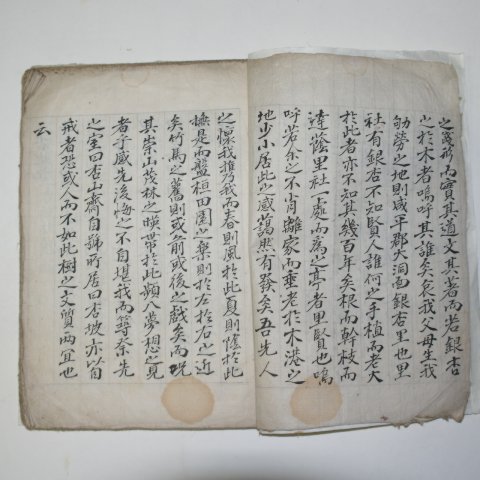 之於而實其道文其著而若銀杏
之於木者嗚呼其誰矣哀我父母生我
劬勞之地則咸平郡大洞面銀杏里也里
社有銀杏不知賢人誰何之手植而老大
於此者亦不知其幾百年矣根而幹枝而
達蔭里社一處而為之亭者里賢也嗚
呼若余之不肖離家而垂老於木港之
地少小居此之感藹然有發矣吾先人
之懷我携我而春則風於此夏則陰於此
撫是而盤桓田園之樂則於左於右之近
矣竹馬之舊則或前或後之戲矣而况
其崇山茂林之暎帶於此頻入夢想宛見
者乎感先後悔之不自堪我而尋先
之室曰杏山齋自號所居曰杏坡亦以自
戒者恐或人而不如此樹之文質兩宜也
云